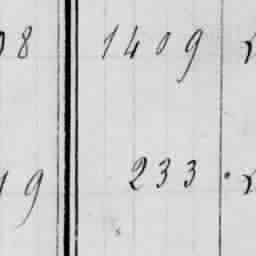 08 1409
19 233